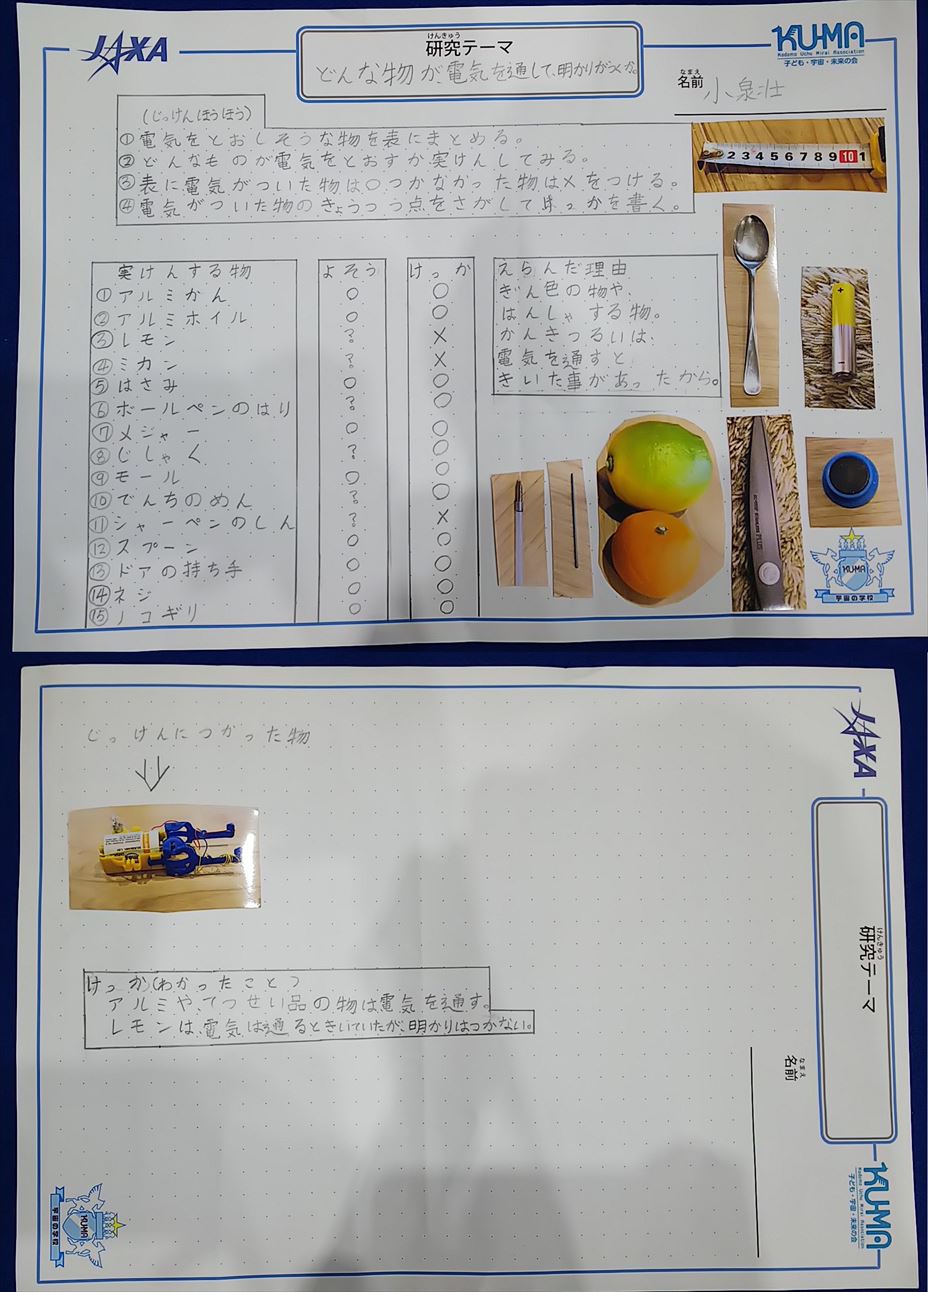 JAXA
けんきゅう
研究テーマ
どんな物が電気を通して、明かりがつくか。
KU-MA
Kodomo Uchu Mirai Association
子ども・宇宙・未来の会
なまえ
名前 小泉壮
(じっけんほうほう)
①電気をとおしそうな物を表にまとめる。
②どんなものが電気をとおすか実けんしてみる。
③表に電気がついた物は○つかなかった物は×をつける。
④電気がついた物のきょうつう点をさがしてけっかを書く。
2 3 4 5 6 7 8 9 10 1
実けんする物 よそう けっか
①アルミかん ○ ○
②アルミホイル ○ ○
③レモン ? ×
④ミカン ? ×
⑤はさみ ○ ○
⑥ボールペンのはり ? ○
⑦メジャー ○ ○
⑧じしゃく ? ○
⑨モール ○ ○
⑩でんちのめん ? ○
⑪シャーペンのしん ? ×
⑫スプーン ○ ○
⑬ドアの持ち手 ○ ○
⑭ネジ ○ ○
⑮ノコギリ ○ ○
えらんだ理由
ぎん色の物や、
はんしゃする物。
かんきつるいは、
電気を通すと
きいた事があったから。
KUMA
宇宙の学校
じっけんにつかった物
けっか(わかったこと)
アルミや、てつせい品の物は電気を通す。
レモンは、電気は通るときいていたが、明かりはつかない。
JAXA
けんきゅう
研究テーマ
なまえ
名前
KU-MA
Kodomo Uchu Mirai Association
子ども・宇宙・未来の会
KUMA
宇宙の学校